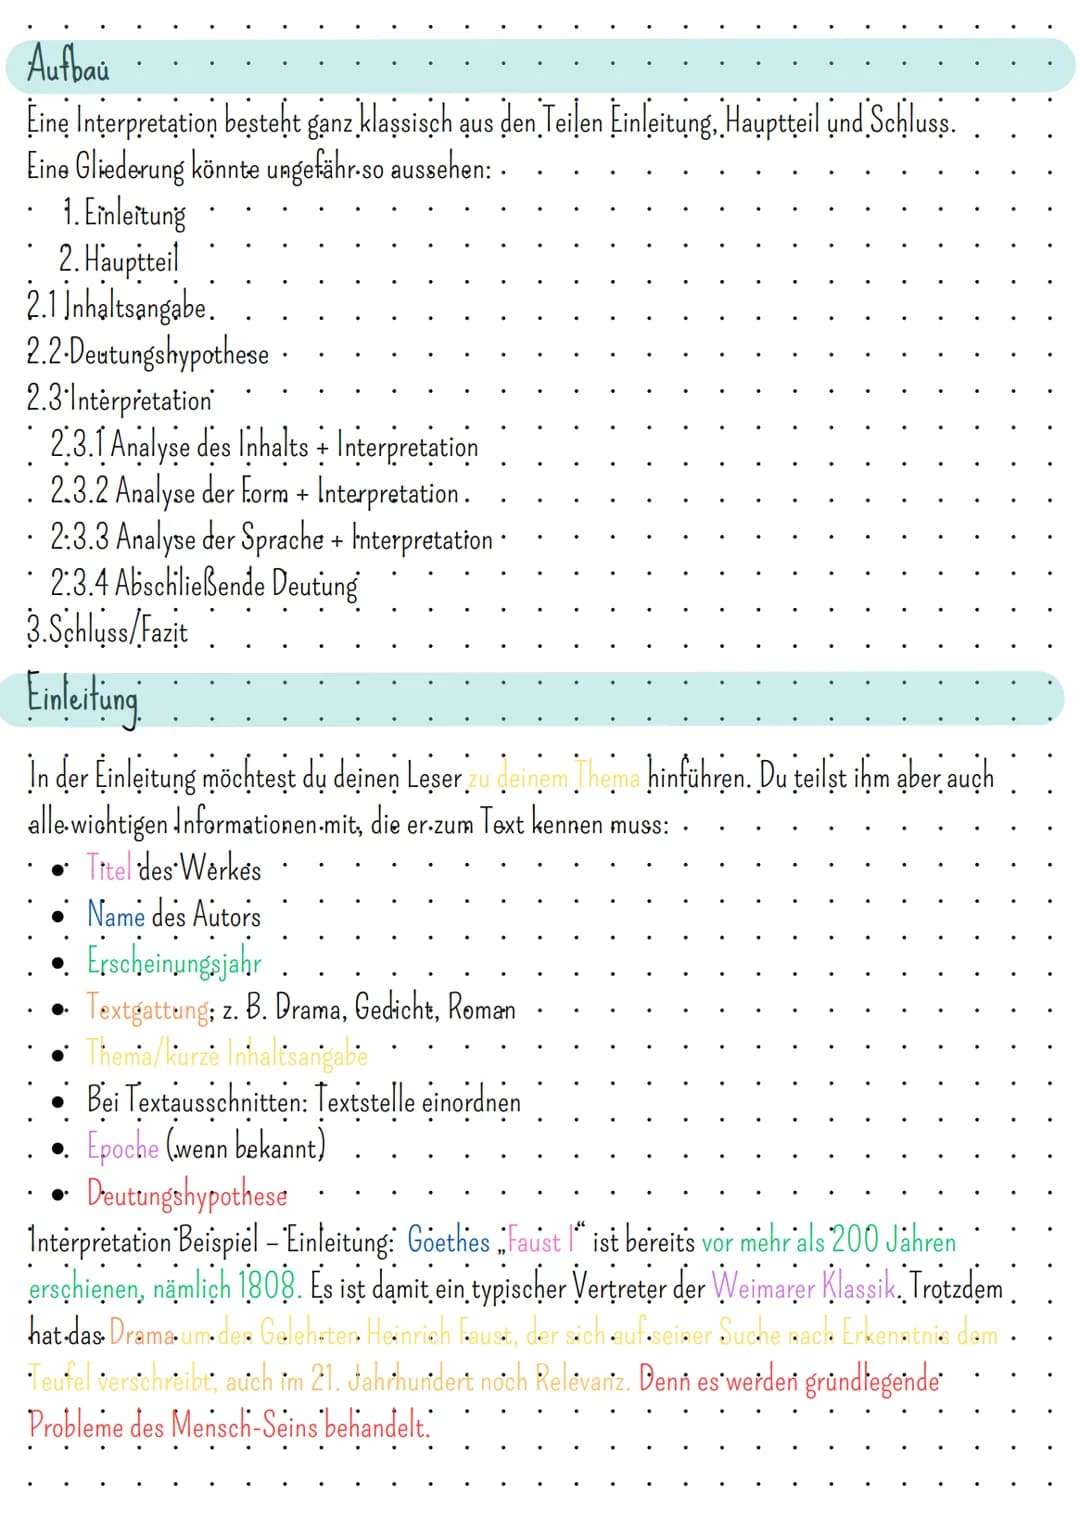 Aufbau
Eine Interpretation besteht ganz klassisch aus den Teilen Einleitung, Hauptteil und Schluss.
Eine Gliederung könnte ungefähr so aussehen:
1. Einleitung
2. Hauptteil
2.1 Inhaltsangabe
2.2 Deutungshypothese
2.3 Interpretation
2.3.1 Analyse des Inhalts + Interpretation
2.3.2 Analyse der Form + Interpretation
2.3.3 Analyse der Sprache + Interpretation
2.3.4 Abschließende Deutung
3.Schluss/Fazit
Einleitung
In der Einleitung möchtest du deinen Leser zu deinem Thema hinführen. Du teilst ihm aber auch
alle wichtigen Informationen mit, die er zum Text kennen muss:
• Titel des Werkes
• Name des Autors
• Erscheinungsjahr
• Textgattung; z. B. Drama, Gedicht, Roman
• Thema/kurze Inhaltsangabe
• Bei Textausschnitten: Textstelle einordnen
• Epoche (wenn bekannt)
• Deutungshypothese
Interpretation Beispiel – Einleitung: Goethes „Faust I“ ist bereits vor mehr als 200 Jahren
erschienen, nämlich 1808. Es ist damit ein typischer Vertreter der Weimarer Klassik. Trotzdem
hat das Drama um den Gelehrten Heinrich Faust, der sich auf seiner Suche nach Erkenntnis dem
Teufel verschreibt, auch im 21. Jahrhundert noch Relevanz. Denn es werden grundlegende
Probleme des Mensch-Seins behandelt.